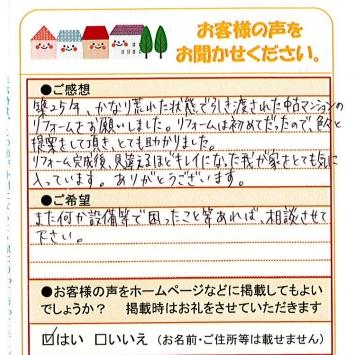 お客様の声を
お聞かせください。
●ご感想
築25年、かなり荒れた状態で引き渡された中古マンションの
リフォームをお願いしました。リフォームは初めてだったので、色々と
提案をして頂き、とても助かりました。
リフォーム完成後、見違えるほどキレイになった我が家をとても気に
入っています。ありがとうございます。
●ご希望
また何か設備等で困ったこと等あれば、相談させて
下さい。
●お客様の声をホームページなどに掲載してもよい
でしょうか？　掲載時はお礼をさせていただきます
☑はい　□いいえ（お名前・ご住所等は載せません）